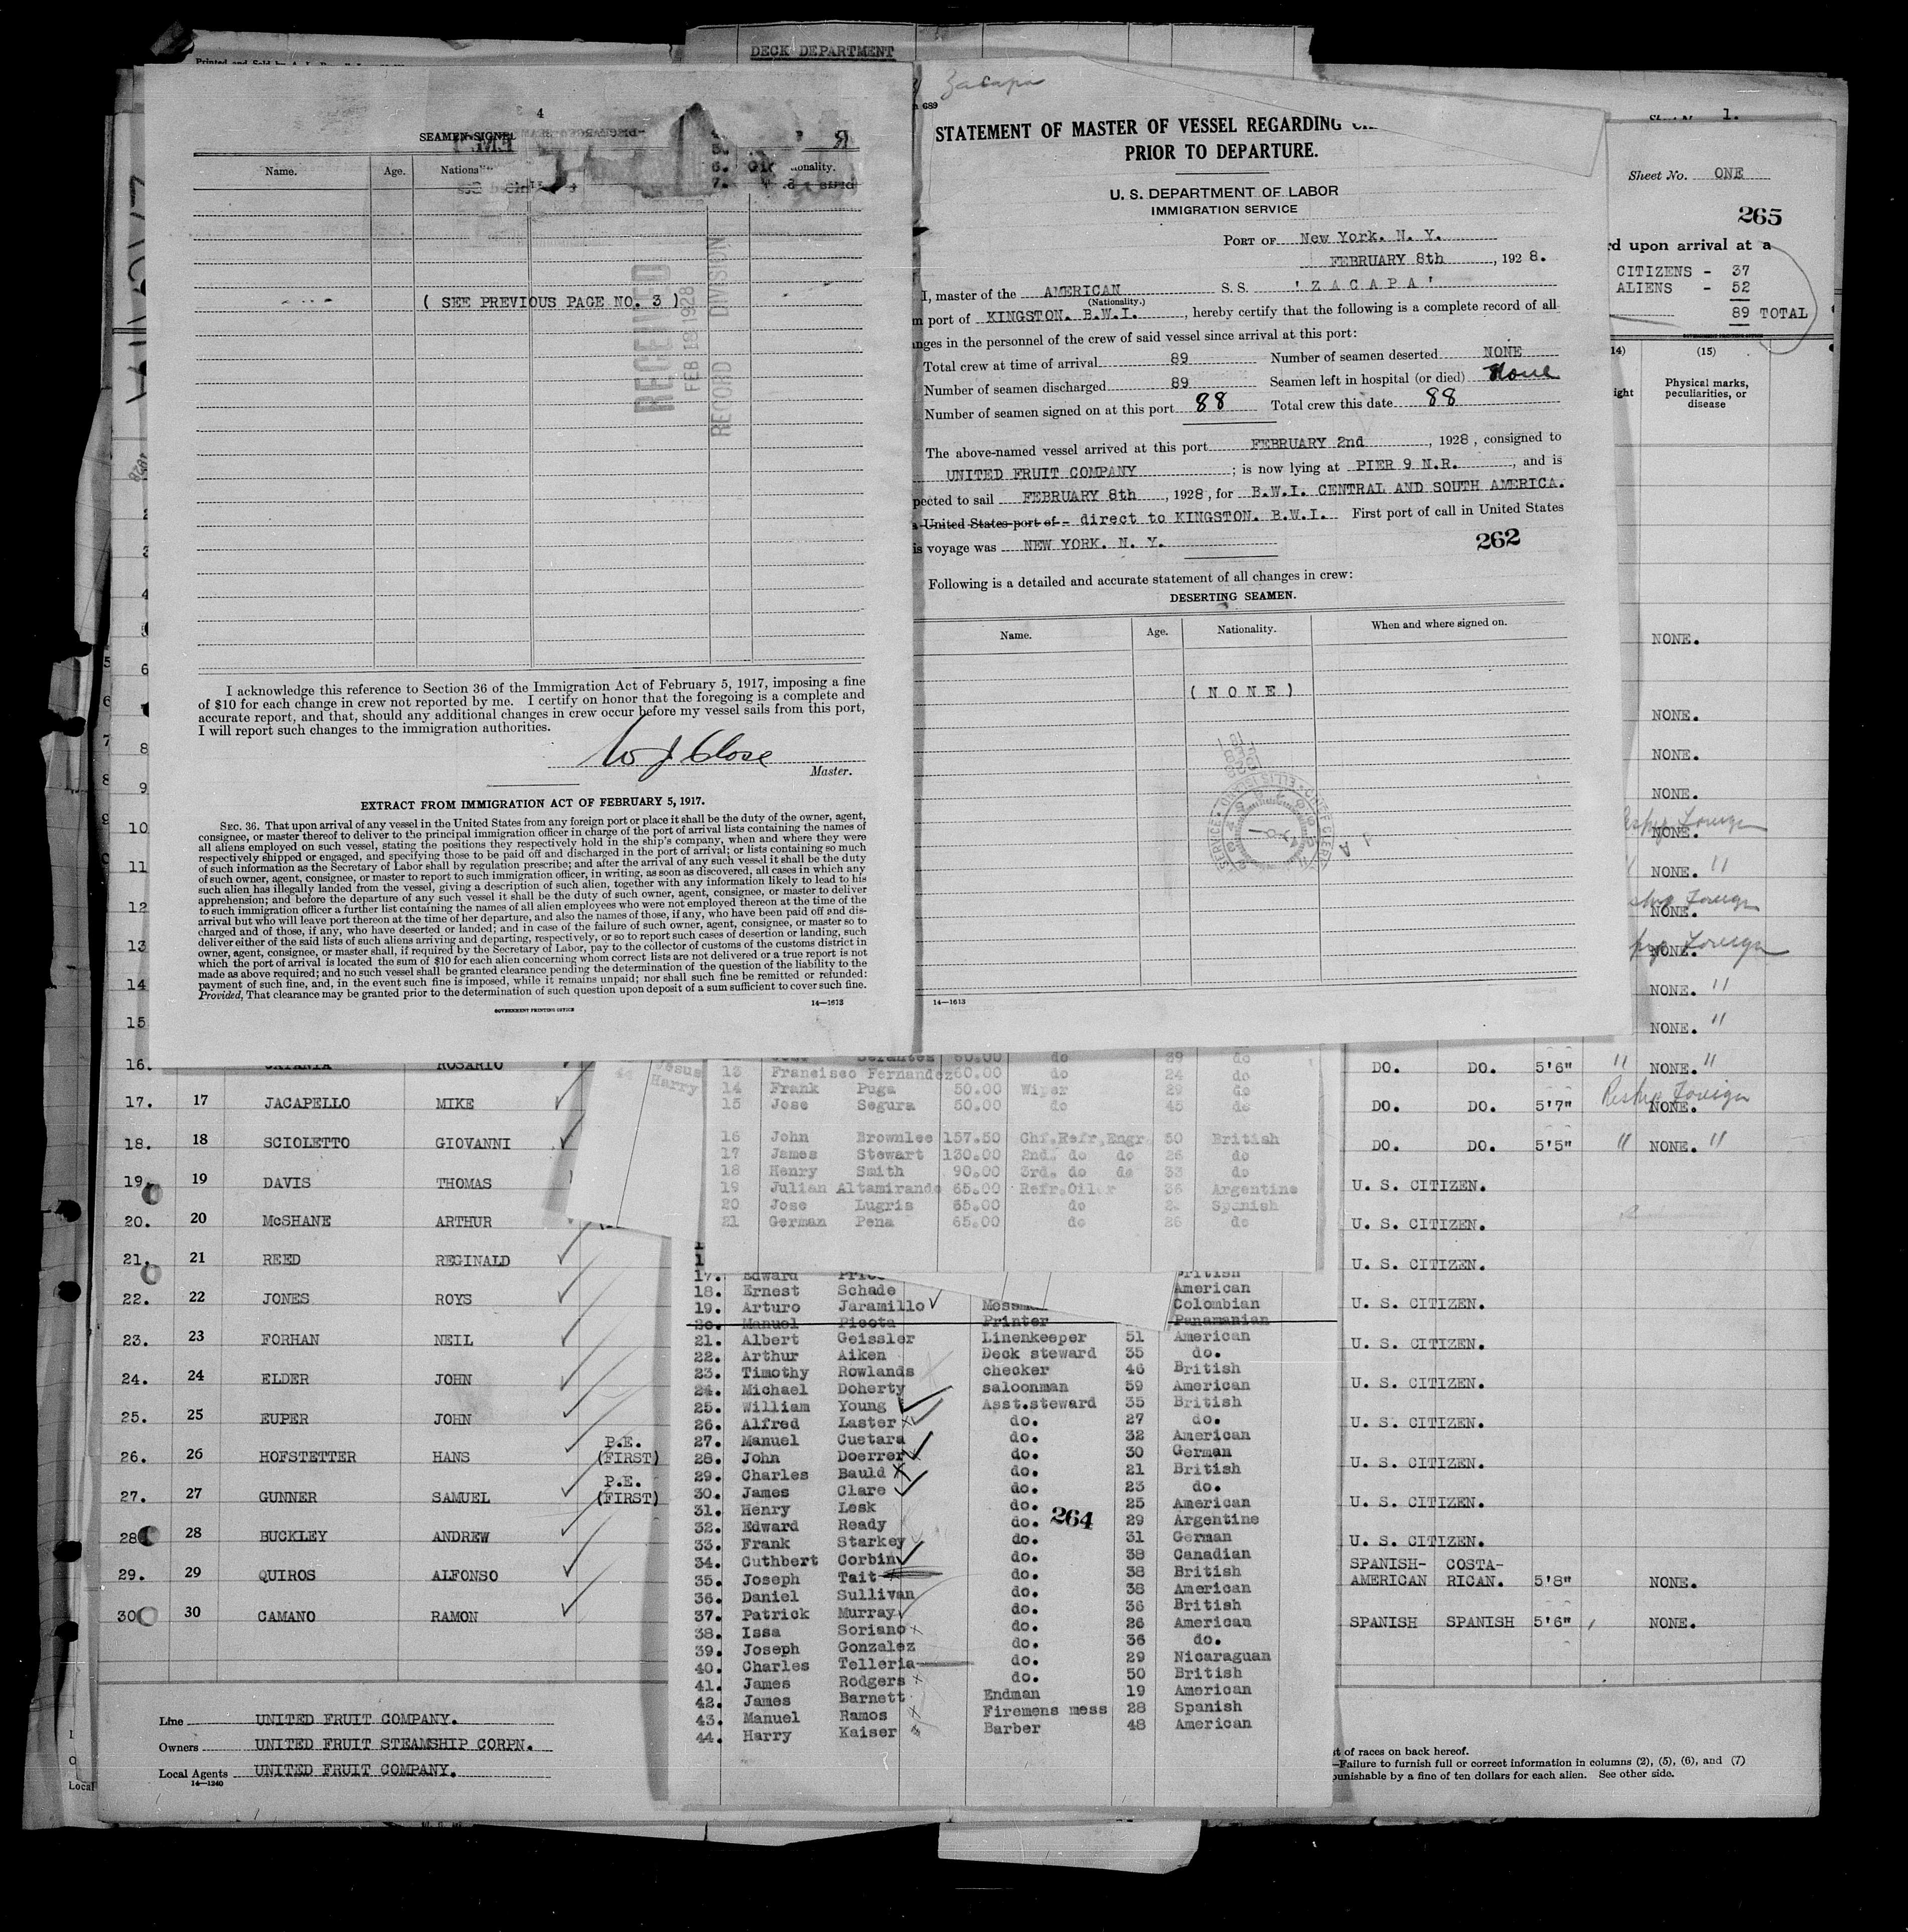 DECK DEPARTMENT
4
SEAMEN SIGNED
Name. Age. Nationality.
( SEE PREVIOUS PAGE NO. 3 )
RECEIVED
FEB 18 1928
RECORD DIVISION
I acknowledge this reference to Section 36 of the Immigration Act of February 5, 1917, imposing a fine
of $10 for each change in crew not reported by me. I certify on honor that the foregoing is a complete and
accurate report, and that, should any additional changes in crew occur before my vessel sails from this port,
I will report such changes to the immigration authorities.
W J Close
Master.
EXTRACT FROM IMMIGRATION ACT OF FEBRUARY 5, 1917.
SEC. 36. That upon arrival of any vessel in the United States from any foreign port or place it shall be the duty of the owner, agent,
consignee, or master thereof to deliver to the principal immigration officer in charge of the port of arrival lists containing the names of
all aliens employed on such vessel, stating the positions they respectively hold in the ship's company, when and where they were
respectively shipped or engaged, and specifying those to be paid off and discharged in the port of arrival; or lists containing so much
of such information as the Secretary of Labor shall by regulation prescribe; and after the arrival of any such vessel it shall be the duty
of such owner, agent, consignee, or master to report to such immigration officer, in writing, as soon as discovered, all cases in which any
such alien has illegally landed from the vessel, giving a description of such alien, together with any information likely to lead to his
apprehension; and before the departure of any such vessel it shall be the duty of such owner, agent, consignee, or master to deliver
to such immigration officer a further list containing the names of all alien employees who were not employed thereon at the time of the
arrival but who will leave port thereon at the time of her departure, and also the names of those, if any, who have been paid off and dis-
charged and of those, if any, who have deserted or landed; and in case of the failure of such owner, agent, consignee, or master so to
deliver either of the said lists of such aliens arriving and departing, respectively, or so to report such cases of desertion or landing, such
owner, agent, consignee, or master shall, if required by the Secretary of Labor, pay to the collector of customs of the customs district in
which the port of arrival is located the sum of $10 for each alien concerning whom correct lists are not delivered or a true report is not
made as above required; and no such vessel shall be granted clearance pending the determination of the question of the liability to the
payment of such fine, and, in the event such fine is imposed, while it remains unpaid; nor shall such fine be remitted or refunded:
Provided, That clearance may be granted prior to the determination of such question upon deposit of a sum sufficient to cover such fine.
14—1613
GOVERNMENT PRINTING OFFICE
Zacapa
689
STATEMENT OF MASTER OF VESSEL REGARDING
PRIOR TO DEPARTURE.
U. S. DEPARTMENT OF LABOR
IMMIGRATION SERVICE
PORT OF New York. N. Y.
FEBRUARY 8th, 1928.
I, master of the AMERICAN S. S. 'ZACAPA'
(Nationality.)
port of KINGSTON. B.W.I., hereby certify that the following is a complete record of all
nges in the personnel of the crew of said vessel since arrival at this port:
Total crew at time of arrival 89 Number of seamen deserted NONE
Number of seamen discharged 89 Seamen left in hospital (or died) None
Number of seamen signed on at this port 88 Total crew this date 88
The above-named vessel arrived at this port FEBRUARY 2nd, 1928, consigned to
UNITED FRUIT COMPANY; is now lying at PIER 9 N.R., and is
pected to sail FEBRUARY 8th, 1928, for B.W.I. CENTRAL AND SOUTH AMERICA.
United States port of - direct to KINGSTON. B.W.I. First port of call in United States
is voyage was NEW YORK. N. Y.
262
Following is a detailed and accurate statement of all changes in crew:
DESERTING SEAMEN.
Name. Age. Nationality. When and where signed on.
( N O N E )
14—1613
1.
Sheet No. ONE
265
rd upon arrival at a
CITIZENS - 37
ALIENS - 52
89 TOTAL
(15)
ight Physical marks,
peculiarities, or
disease
NONE.
NONE.
NONE.
NONE.
NONE.
NONE. "
NONE.
NONE.
NONE. "
NONE. "
16. ROSARIO DO. DO. 5'6" " NONE. "
17. 17 JACAPELLO MIKE DO. DO. 5'7" Reship Foreign NONE.
18. 18 SCIOLETTO GIOVANNI DO. DO. 5'5" " NONE. "
19. 19 DAVIS THOMAS U. S. CITIZEN.
20. 20 McSHANE ARTHUR U. S. CITIZEN.
21. 21 REED REGINALD U. S. CITIZEN.
22. 22 JONES ROYS U. S. CITIZEN.
23. 23 FORHAN NEIL U. S. CITIZEN.
24. 24 ELDER JOHN U. S. CITIZEN.
25. 25 EUPER JOHN U. S. CITIZEN.
26. 26 HOFSTETTER HANS P.E. (FIRST) U. S. CITIZEN.
27. 27 GUNNER SAMUEL P.E. (FIRST) U. S. CITIZEN.
28 28 BUCKLEY ANDREW U. S. CITIZEN.
29. 29 QUIROS ALFONSO SPANISH-AMERICAN COSTA-RICAN. 5'8" NONE.
30 30 CAMANO RAMON SPANISH SPANISH 5'6" NONE.
Line UNITED FRUIT COMPANY.
Owners UNITED FRUIT STEAMSHIP CORPN.
Local Agents UNITED FRUIT COMPANY.
14—1240
44 Harry
13 Francisco Fernandez 60.00 do 24 do
14 Frank Puga 50.00 Wiper 29 do
15 Jose Segura 50.00 do 45 do
16 John Brownlee 157.50 Chf.Refr.Engr. 50 British
17 James Stewart 130.00 2nd. do do 26 do
18 Henry Smith 90.00 3rd. do do 33 do
19 Julian Altamirando 65.00 Refr.Oiler 36 Argentine
20 Jose Lugris 65.00 do Spanish
21 German Pena 65.00 do 26 do
17. Edward British
18. Ernest Schade American
19. Arturo Jaramillo Colombian
20. Manuel Picota Printer Panamanian
21. Albert Geissler Linenkeeper 51 American
22. Arthur Aiken Deck steward 35 do.
23. Timothy Rowlands checker 46 British
24. Michael Doherty saloonman 59 American
25. William Young Asst.steward 35 British
26. Alfred Laster do. 27 do.
27. Manuel Cuetara do. 32 American
28. John Doerrer do. 30 German
29. Charles Bauld do. 21 British
30. James Clare do. 23 do.
31. Henry Lesk do. 25 American
32. Edward Ready do. 29 Argentine
33. Frank Starkey do. 31 German
34. Cuthbert Corbin do. 38 Canadian
35. Joseph Tait do. 38 British
36. Daniel Sullivan do. 38 American
37. Patrick Murray do. 36 British
38. Issa Soriano do. 26 American
39. Joseph Gonzalez do. 36 do.
40. Charles Telleria do. 29 Nicaraguan
41. James Rodgers do. 50 British
42. James Barnett Endman 19 American
43. Manuel Ramos Firemens mess 28 Spanish
44. Harry Kaiser Barber 48 American
264
t of races on back hereof.
—Failure to furnish full or correct information in columns (2), (5), (6), and (7)
punishable by a fine of ten dollars for each alien. See other side.